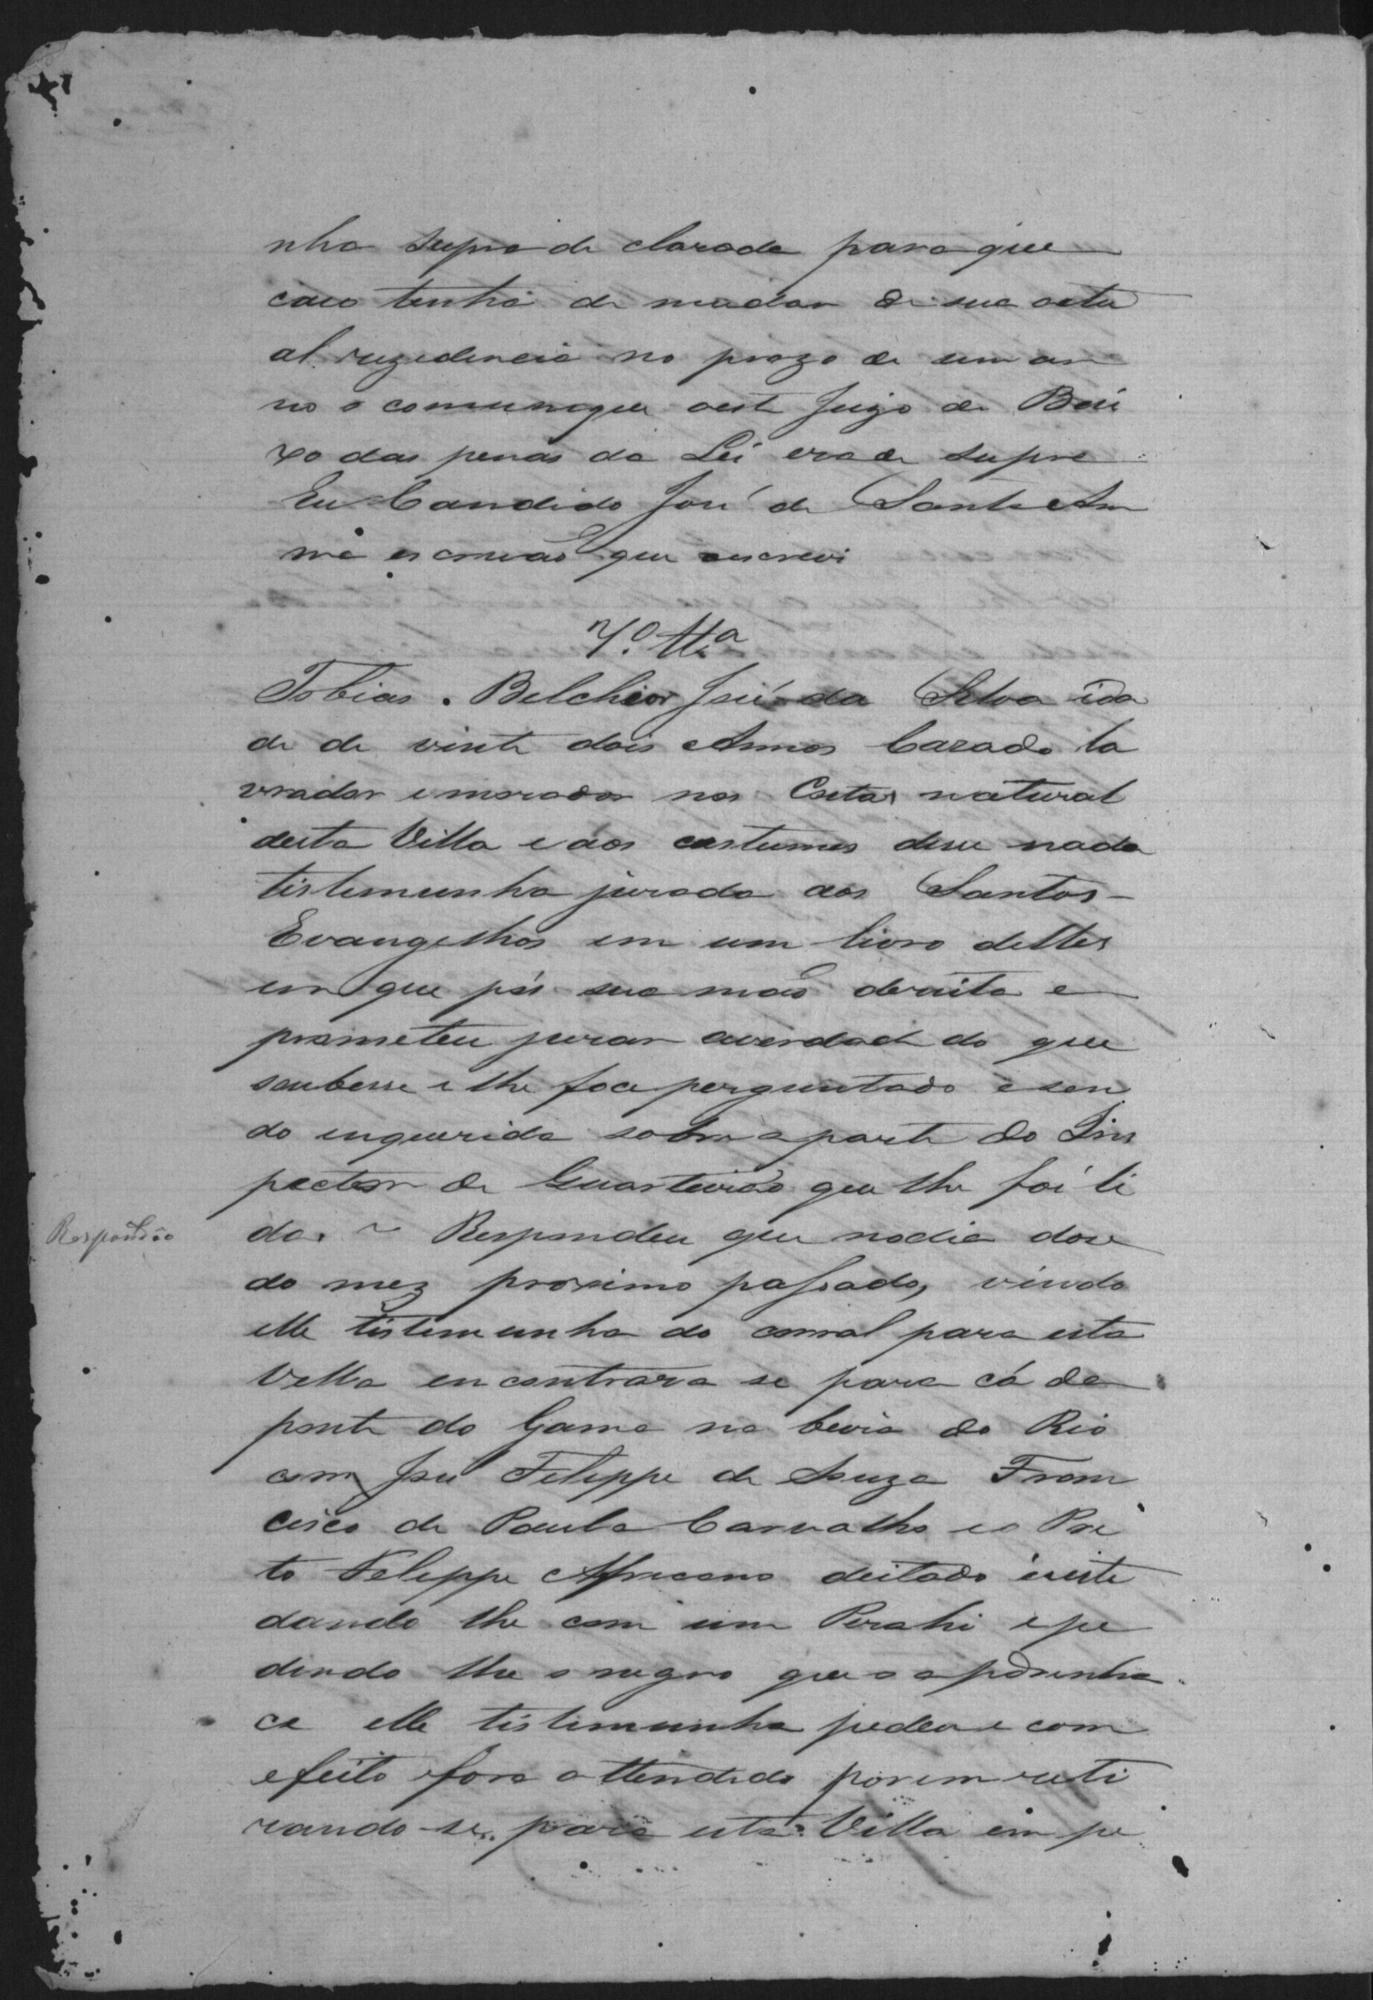 nha supra de clarada para que
caso tenha de mudar de sua actu
al rezedencia no prazo de um an
no o comunique aest Juizo de Bai
xo das penas da Lei era de supra
Eu Candido José de Santa An
na escrivão que escrevi
7ª Ttª
Tobias Belchior José da Silva ida
de de vinte dois Annos Cazado la
vrador e morador nos Cutas natural
desta Villa e aos custumes disse nada
tistemunha jurada aos Santos
Evangelhos em um livro delles
em que pós sua mão deraita e
prometeu jurar averdade do que
soubesse e lhe foce perguntado e sen
do enquerida sobre a parte do Ins
pector de Quarteirão que lhe foi li
da. Respondeu que no dia doze
do mez proximo passado, vindo
elle tistemunha do corral para esta
Villa encontrara se para cá da
ponte do Gama na beira do Rio
com José Felippe de Souza Fran
cisco de Paula Carvalho e o Pre
to Felippe Africano deitado e este
dando lhe com um Perahi e pe
dindo lhe o negro que o apadrinha
ce elle tistimunha pedeu e com
efeito fora attendido porem reti
rando-se para esta Villa em pe
Respondeo